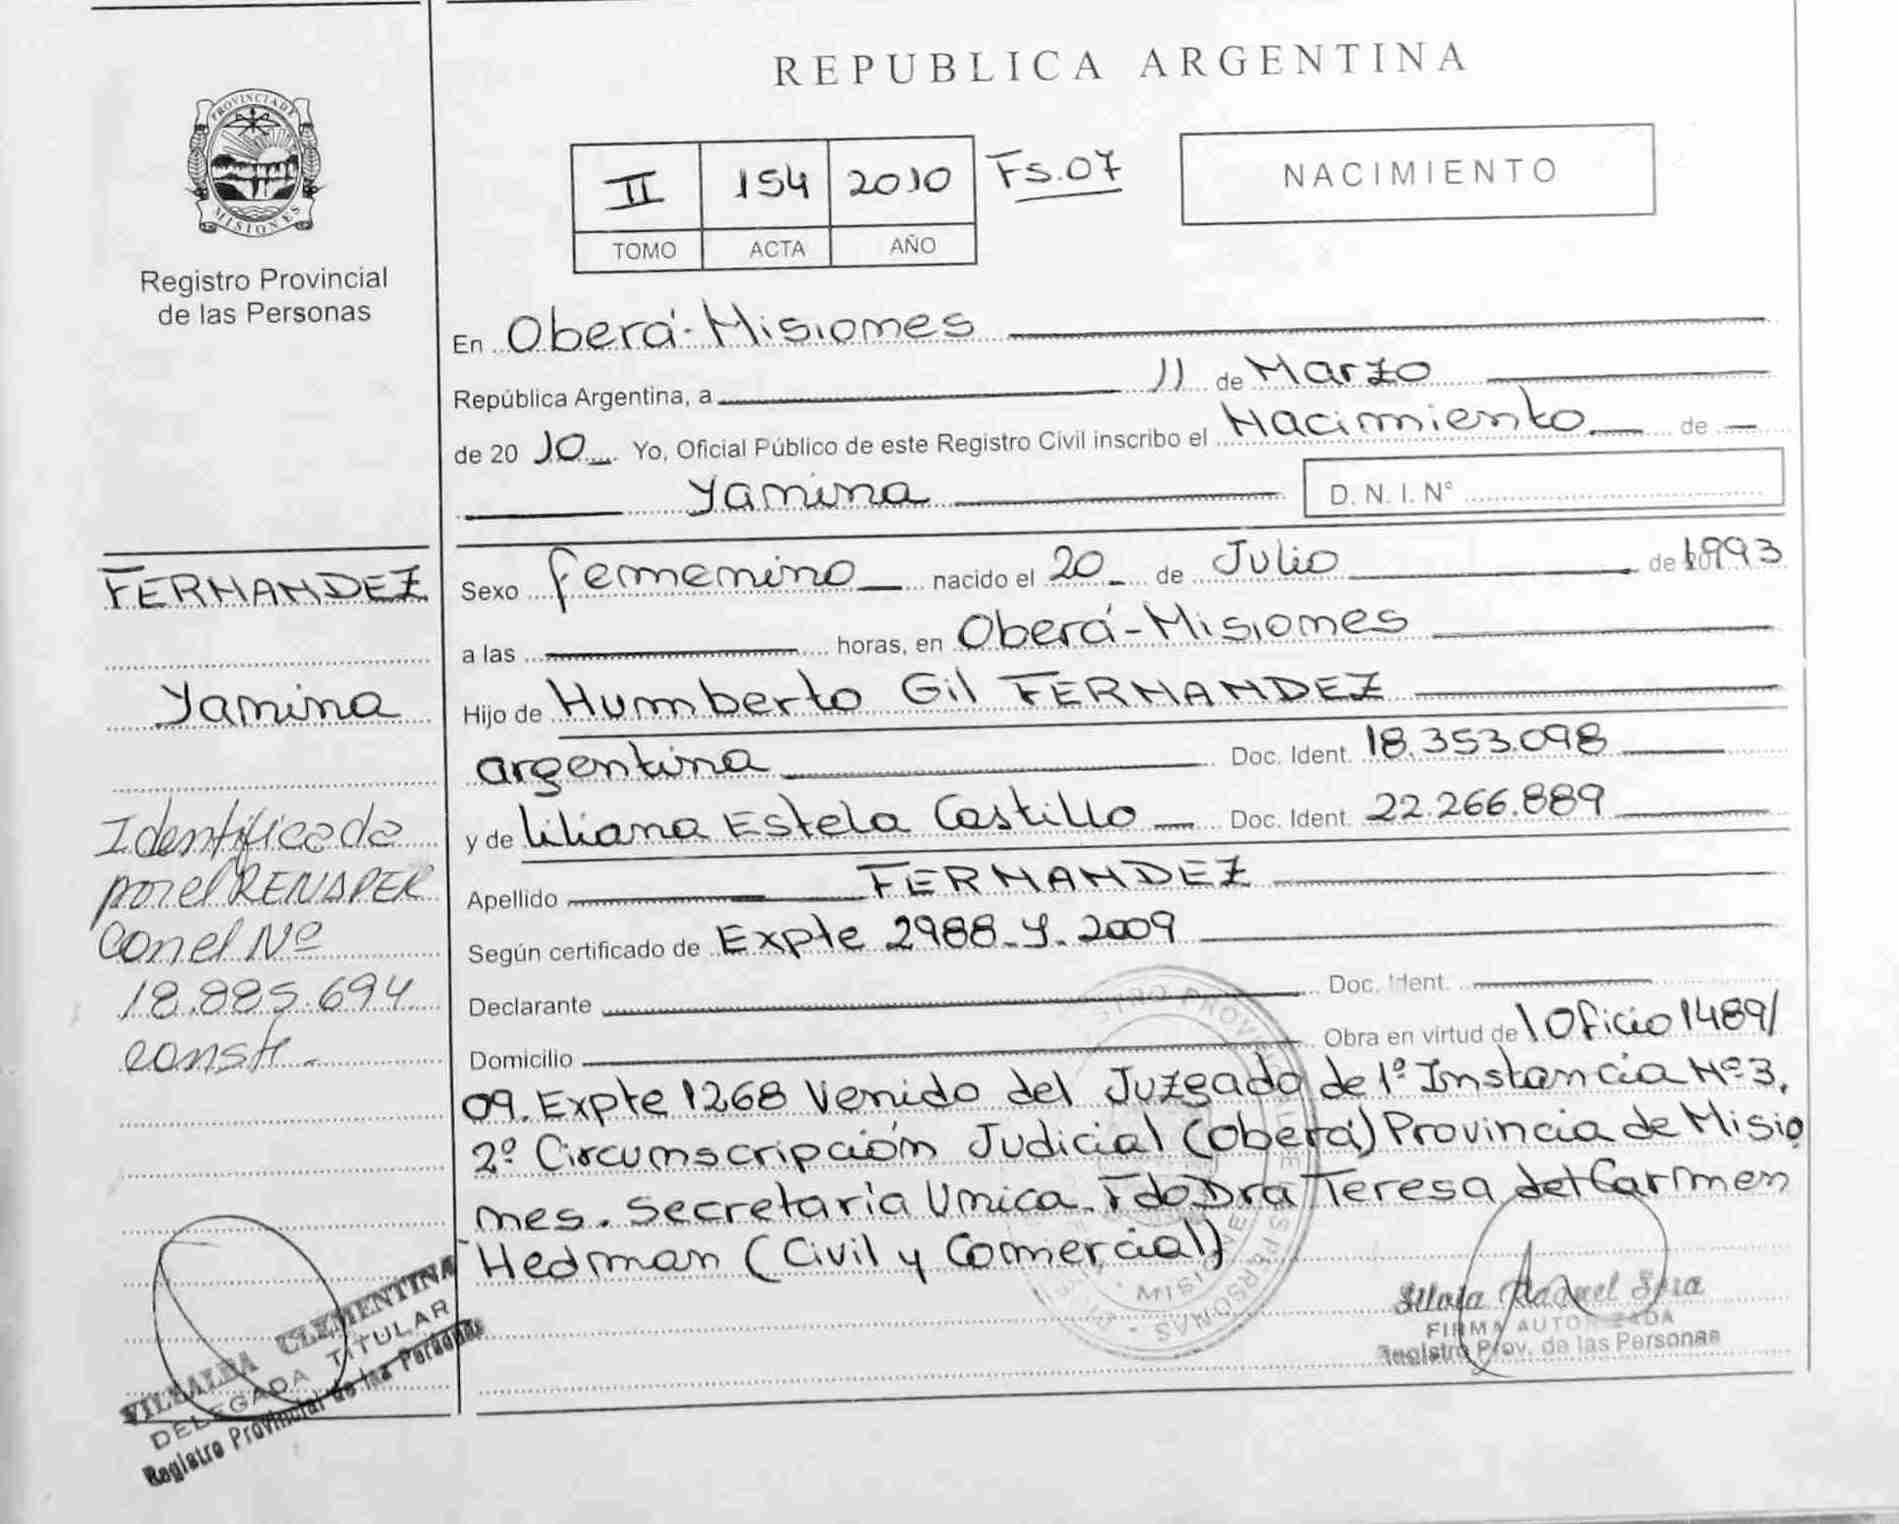 REPUBLICA ARGENTINA
PROVINCIA DE
MISIONES
Registro Provincial
de las Personas
II 154 2010 Fs.07
TOMO ACTA AÑO
NACIMIENTO
En Oberá-Misiones
República Argentina, a 11 de Marzo
de 2010 Yo, Oficial Público de este Registro Civil inscribo el Nacimiento de
Yamina D. N. I. Nº
FERNANDEZ
Yamina
Identificada
por el RENAPER
Con el Nº
18.885.694
const.
Sexo femenino nacido el 20 de Julio de 1993
a las horas, en Oberá-Misiones
Hijo de Humberto Gil FERNANDEZ
argentina Doc. Ident. 18.353.098
y de Liliana Estela Castillo Doc. Ident. 22.266.889
Apellido FERNANDEZ
Según certificado de Expte 2988-Y-2009
Declarante Doc. Ident.
Domicilio Obra en virtud de Oficio 1489/
09. Expte 1268 Venido del Juzgado de 1º Instancia Nº3,
2º Circumscripción Judicial (Oberá) Provincia de Misio
nes. Secretaría Unica. Fdo Dra Teresa del Carmen
Hedman (Civil y Comercial)
VILLALBA CLEMENTINA
DELEGADA TITULAR
Registro Provincial de las Personas
Silvia Raquel
FIRMA AUTORIZADA
Registro Prov. de las Personas